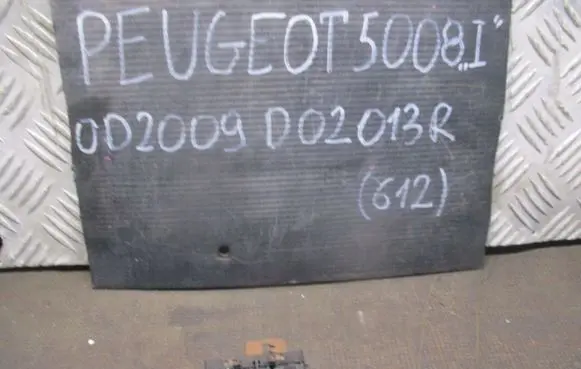 PEUGEOT 5008 „I"
OD2009 DO2013R
(612)